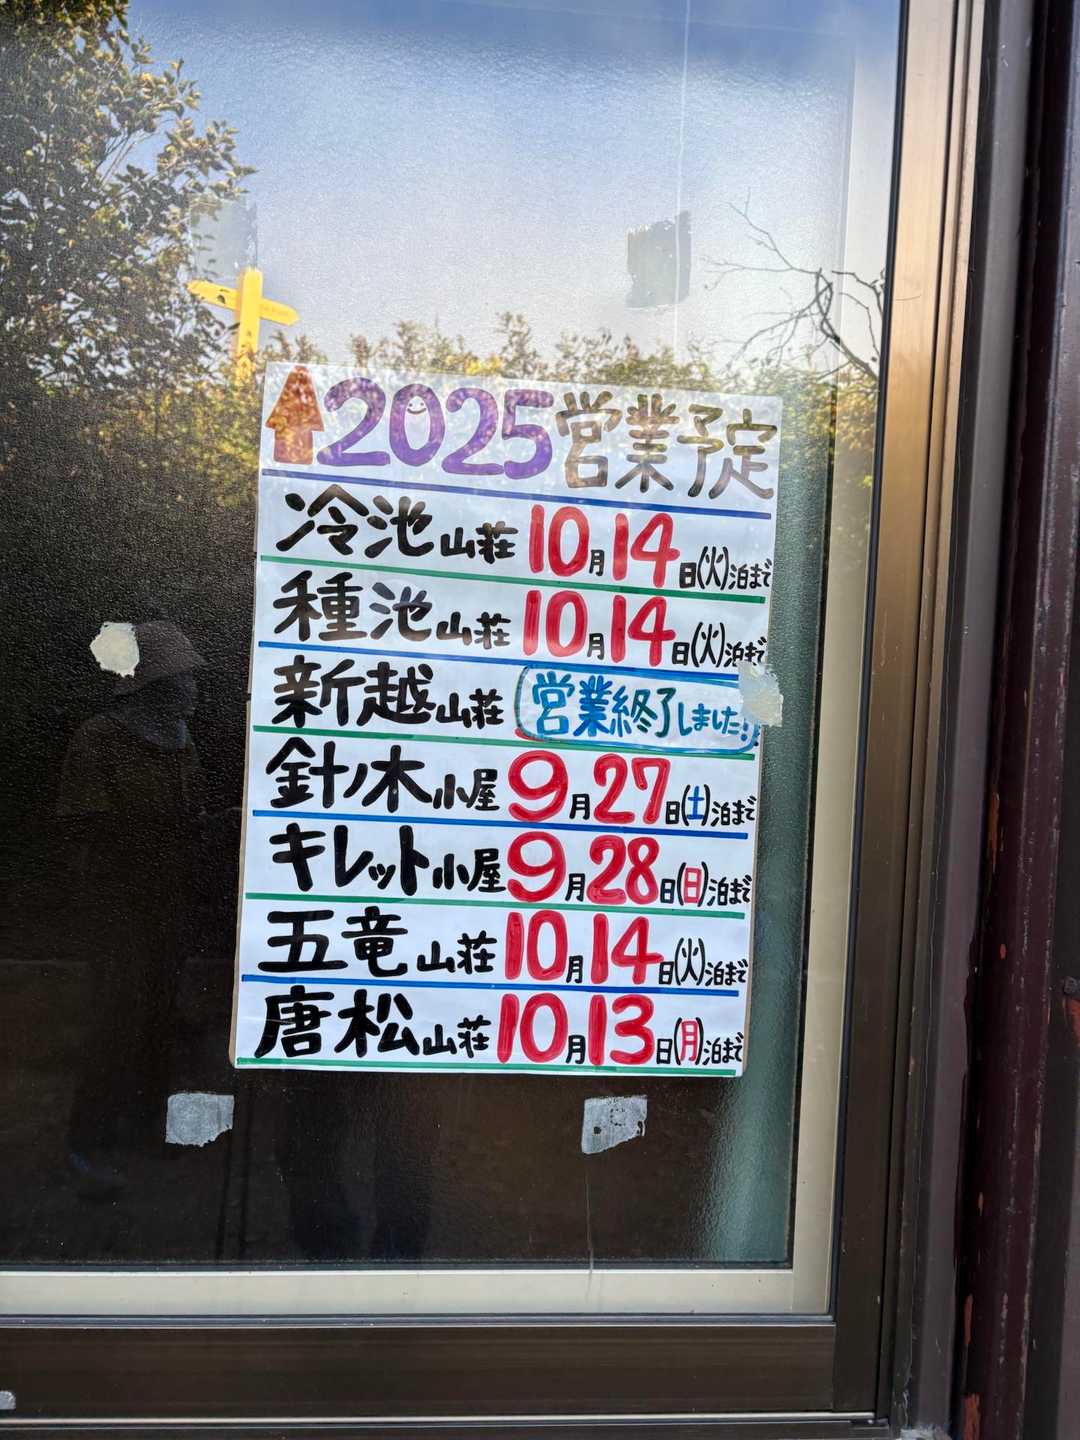 2025営業予定
冷池山荘 10月14日(火)泊まで
種池山荘 10月14日(火)泊まで
新越山荘 営業終了しました!!
針ノ木小屋 9月27日(土)泊まで
キレット小屋 9月28日(日)泊まで
五竜山荘 10月14日(火)泊まで
唐松山荘 10月13日(月)泊まで